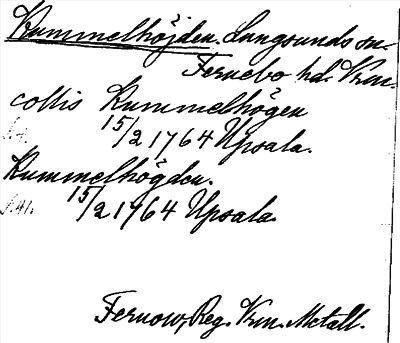 Kummelhöjden. Långsunds sn.
Fernebo hd. Vrm.
collis Kummelhögen
s. 4. 15/2 1764 Upsala.
Kummelhögden.
s. 41. 15/2 1764 Upsala.
Fernow, Reg. Vrm. Metall.